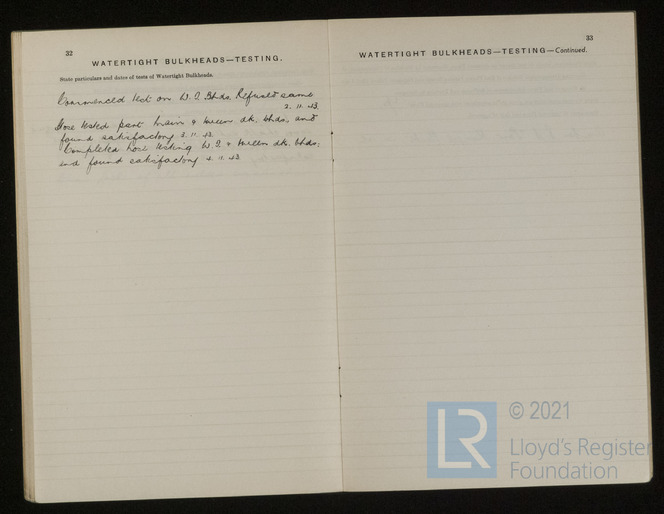 32
WATERTIGHT BULKHEADS—TESTING.
State particulars and dates of tests of Watertight Bulkheads.
Commenced test on W.T. Bhds. Refused same
2. 11. 43.
Hose tested part main & tween dk. bhds, and
found satisfactory 3. 11. 43.
Completed hose testing W.T. & tween dk. bhds;
and found satisfactory 4. 11. 43.
33
WATERTIGHT BULKHEADS—TESTING—Continued.
LR
© 2021
Lloyd's Register
Foundation